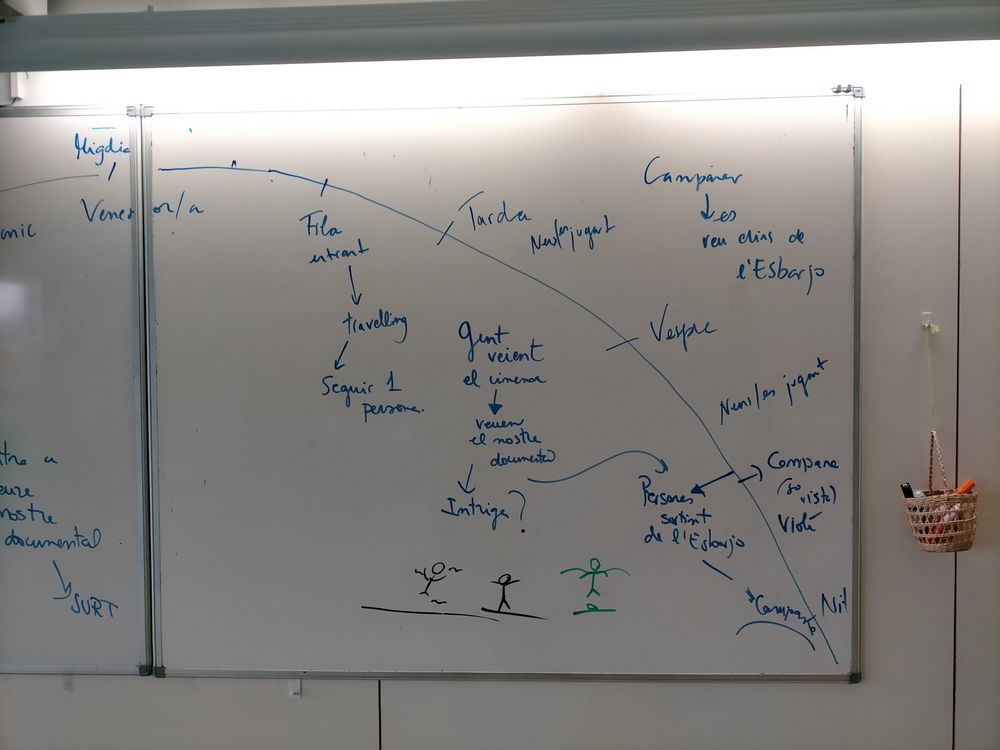 Migdia
Venedor/a
Fila
entrant
travelling
Seguir 1
persona.
Tarda
Nens/es jugant
Campaner
es
veu dins de
l'Esbarjo
Vespre
Gent
veient
el cinema
veuen
el nostre
documental
Intriga?
Nens/es jugant
Persones
sortint
de l'Esbarjo
Campana
(so
vista)
Nit
nostre
documental
SURT